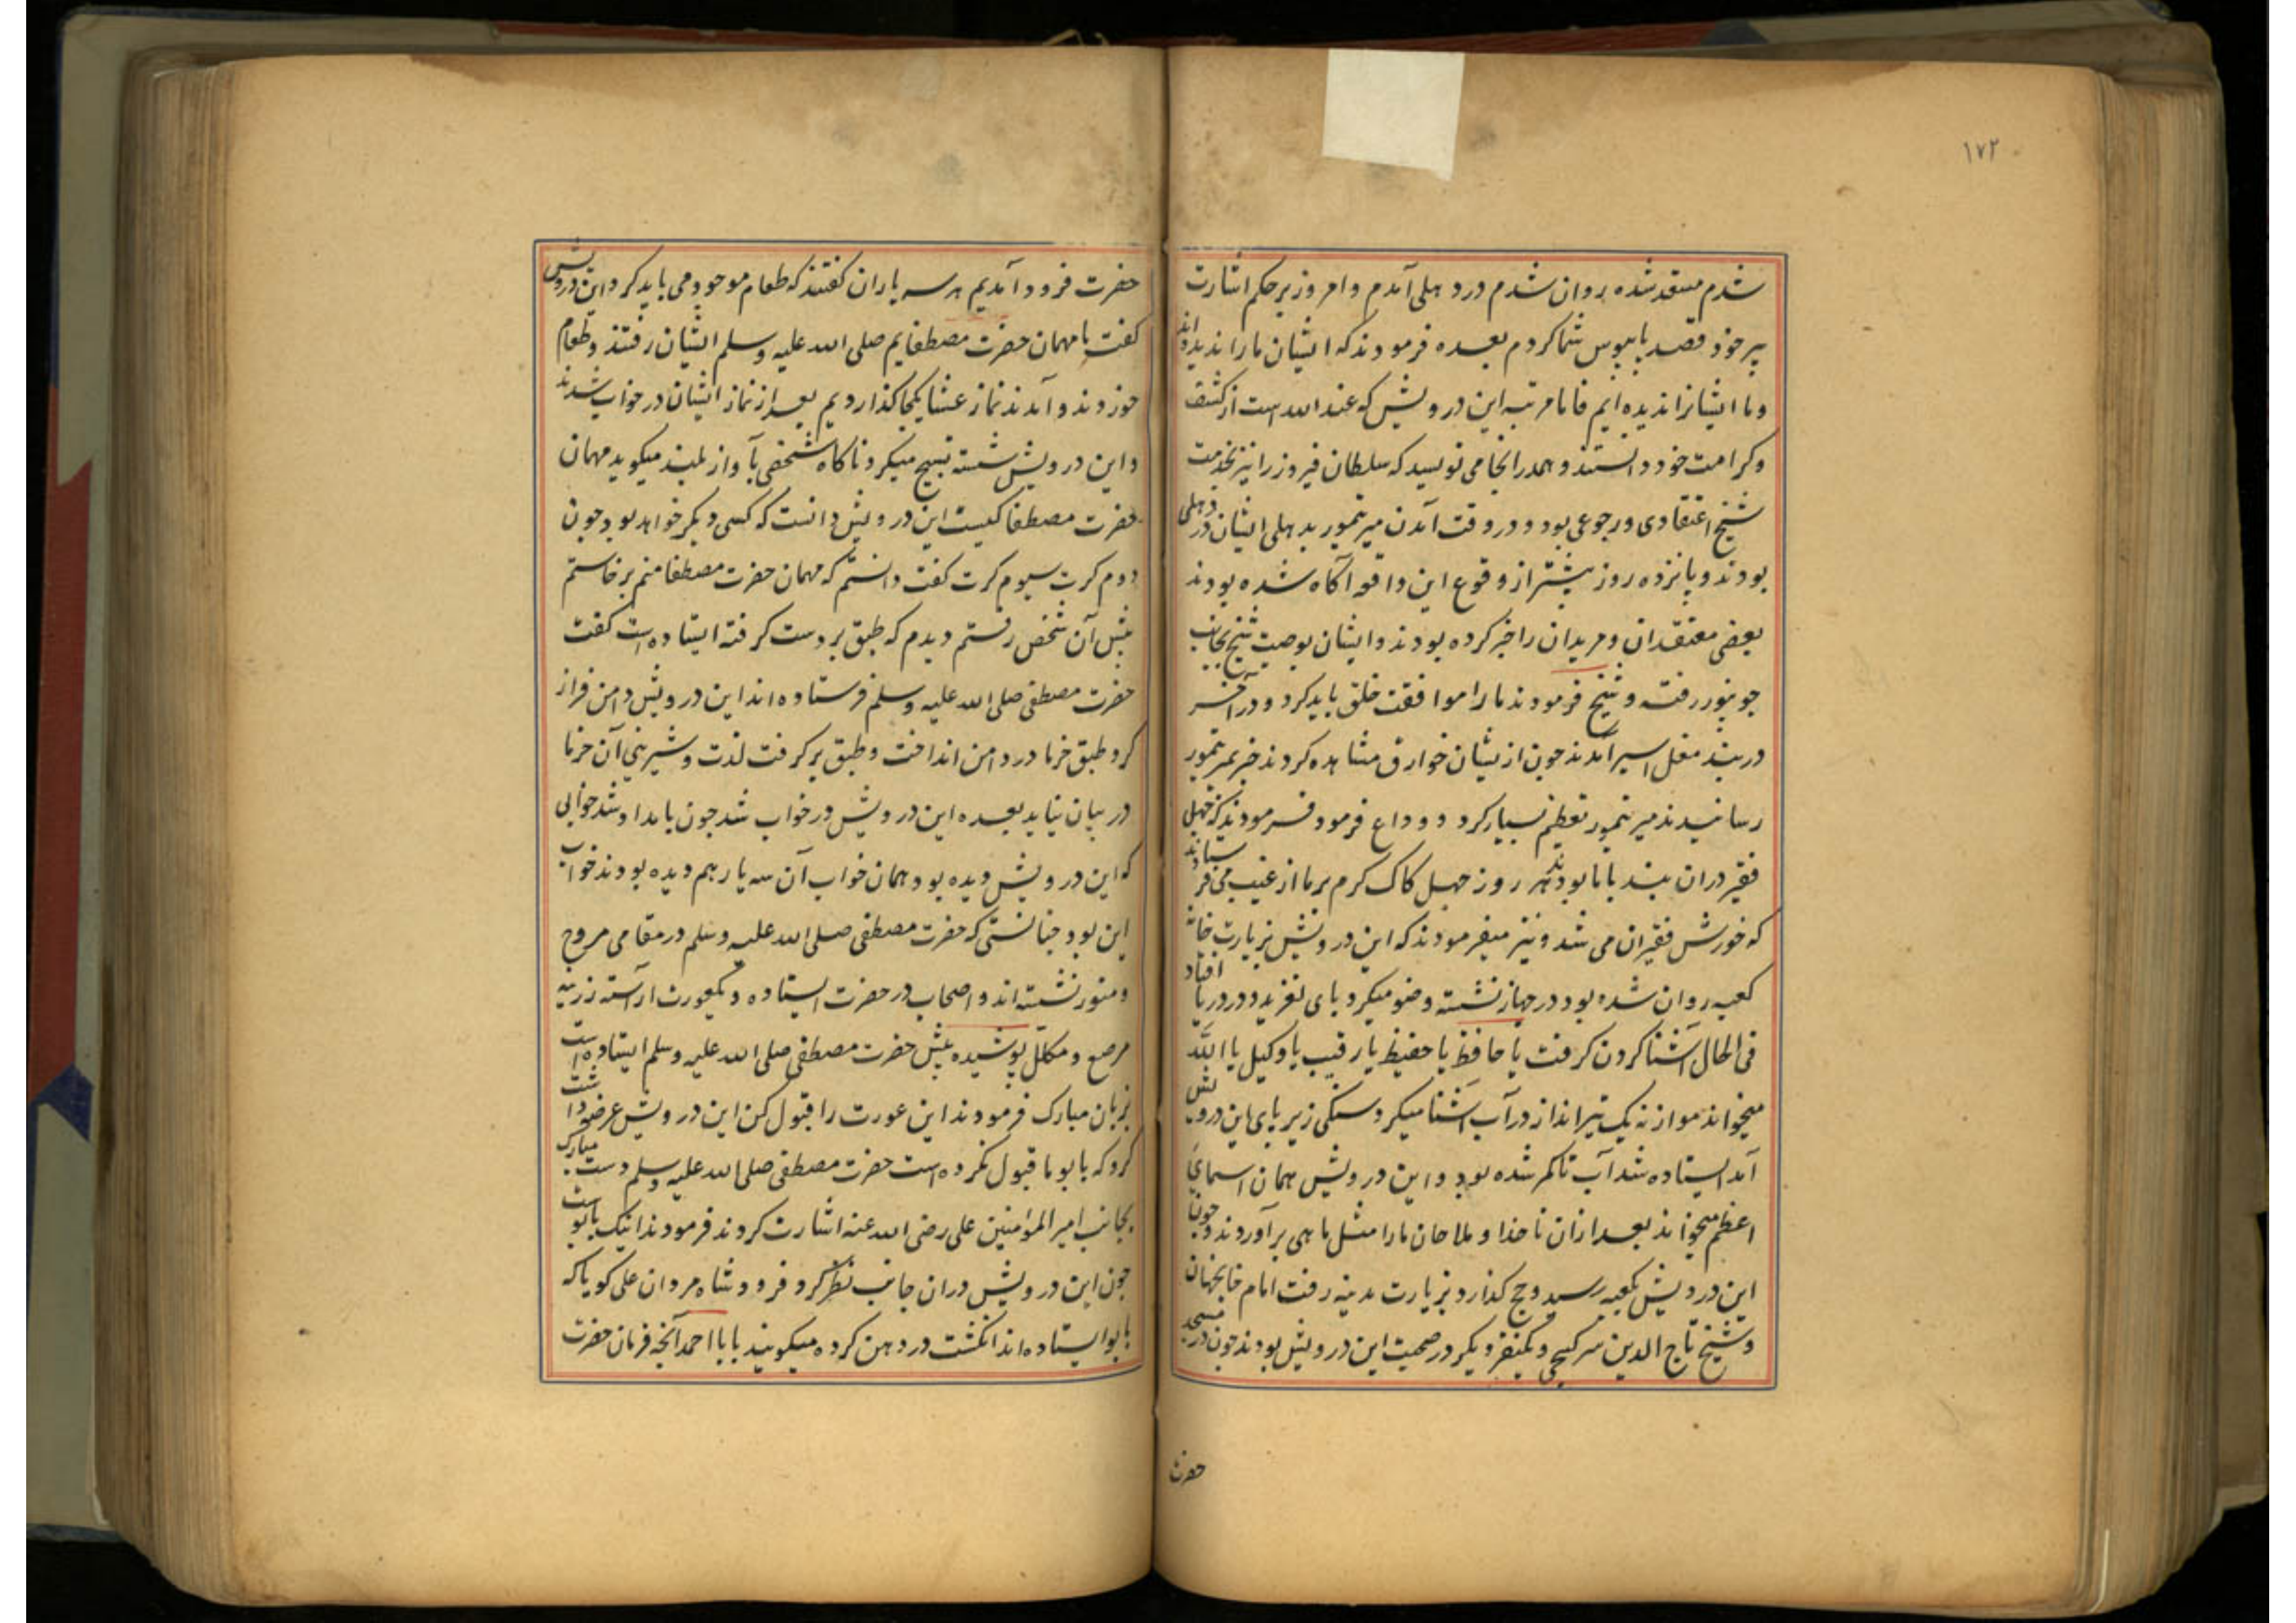 ۱۷۲
شدم مستعد شده روان شدم در دهلی آمدم و امروز بر حکم اشارت
پیر خود قصد پابوس شما کردم بعده فرمودند که ایشان ما را ندیده اند
و ما ایشانرا ندیده ایم فاما مرتبه این درویش که عند الله است از کشف
و کرامت خود دانستند و همدرانجا می نویسد که سلطان فیروز را نیز بخدمت
شیخ اعتقادی و رجوعی بود و در وقت آمدن میر تیمور بدهلی ایشان در دهلی
بودند و پانزده روز پیشتر از وقوع این واقعه آکاه شده بودند
بعضی معتقدان و مریدان را خبر کرده بودند و ایشان بوصیت شیخ بجانب
جونپور رفته و شیخ فرمودند ما را موافقت خلق باید کرد و در آخر
در بند مغل اسیر آمدند جون ازیشان خوارق مشاهده کردند خبر بمیر تیمور
رسانیدند میر تیمور تعظیم بسیار کرد و وداع فرمود فرمودند که جهل
فقیر دران بند با ما بودند هر روز جهل کاک کرم بر ما از غیب می فرستادند
که خورش فقیران می شد و نیز میفرمودند که این درویش بزیارت خانه
کعبه روان شده بود در جهاز نشسته وضو میکرد پای لغزید و در دریا افتاد
فی الحال آشنا کردن کرفت یا حافظ یا حفیظ یا رقیب یا وکیل یا الله
میخواند موازنه یک تیر انداز در آب آشنا میکرد سنکی زیر پای این درویش
آمد ایستاده شد آب تا کمر شده بود و این درویش همان اسمای
اعظم میخواند بعد ازان ناخدا و ملاحان ما را مثل ماهی برآوردند و جون
این درویش بکعبه رسید و حج کذارد و بزیارت مدینه رفت امام خانجهان
و شیخ تاج الدین سرکیجی و یکنفر دیکر در صحبت این درویش بودند جون در مسجد
حضرت
حضرت فرود آمدیم هر سه یاران کفتند که طعام موجود می باید کرد این درویش
کفت ما مهمان حضرت مصطفایم صلی الله علیه وسلم ایشان رفتند و طعام
خوردند و آمدند نماز عشا یکجا کذاردیم بعد از نماز ایشان در خواب شدند
و این درویش نشسته تسبیح میکرد ناکاه شخصی بآواز بلند میکوید مهمان
حضرت مصطفا کیست این درویش دانست که کسی دیکر خواهد بود جون
دوم کرت سیوم کرت کفت دانستم که مهمان حضرت مصطفا منم برخاستم
پیش آن شخص رفتم دیدم که طبق بر دست کرفته ایستاده است کفت
حضرت مصطفی صلی الله علیه وسلم فرستاده اند این درویش دامن فراز
کرد طبق خرما در دامن انداخت و طبق برکرفت لذت و شیرینی آن خرما
در بیان نیاید بعده این درویش در خواب شد جون بامداد شد خوابی
که این درویش دیده بود همان خواب آن سه یار هم دیده بودند خواب
این بود جنانستی که حضرت مصطفی صلی الله علیه وسلم در مقامی مروح
و منور نشسته اند و اصحاب در حضرت ایستاده و یکعورت آراسته زرینه
مرصع و مکلل پوشیده پیش حضرت مصطفی صلی الله علیه وسلم ایستاده است
بزبان مبارک فرمودند این عورت را قبول کن این درویش عرضداشت
کرد که بابو ما قبول نکرده است حضرت مصطفی صلی الله علیه وسلم دست مبارک
بجانب امیر المؤمنین علی رضی الله عنه اشارت کردند فرمودند اینک بابوست
جون این درویش دران جانب نظر کرد فرود شاه مردان علی کویا که
بابو ایستاده اند انکشت در دهن کرده میکویند بابا احمد آنچه فرمان حضرت